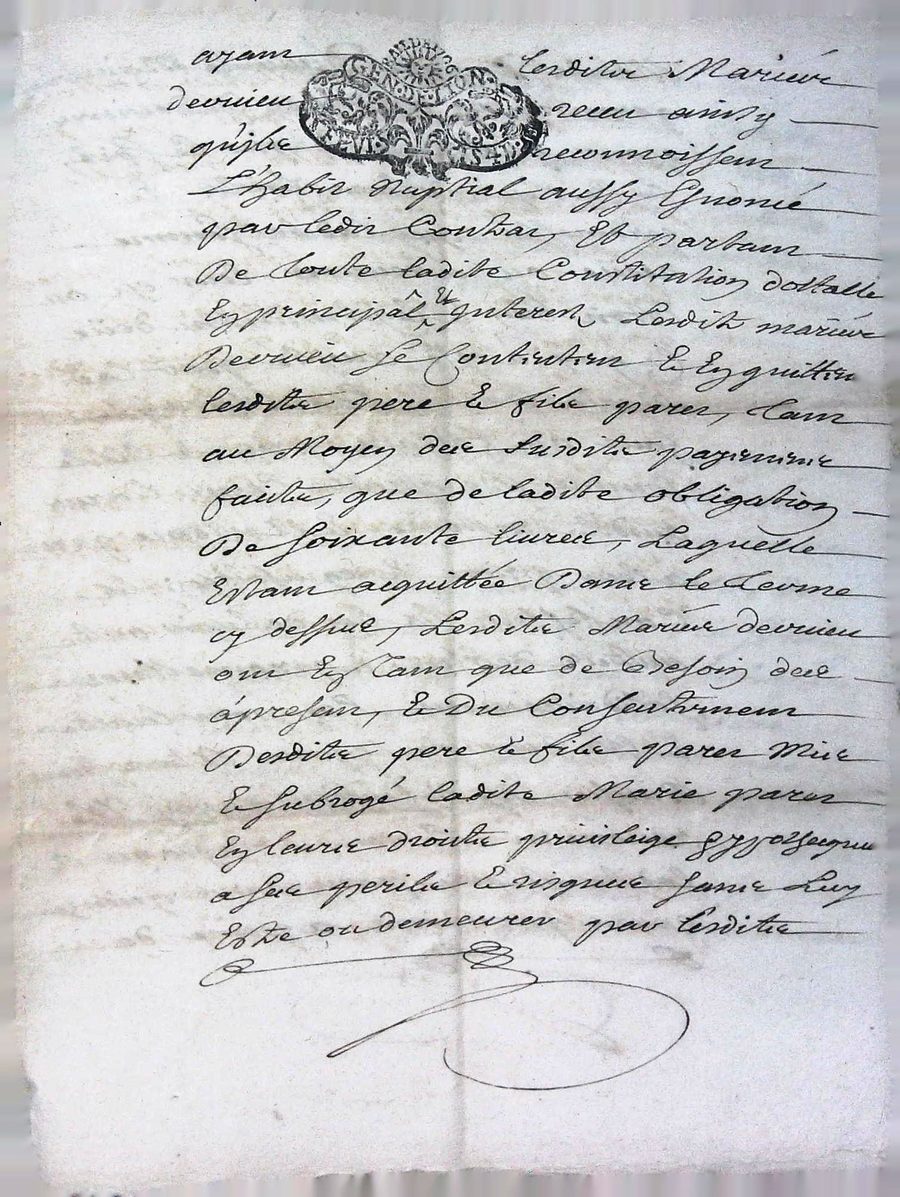 ayant lesdits Mariés
devrieu GEN. DE. LION. receu ainsy
qu'ils reconnoissent
L'habit nuptial aussy Enoncé
par ledit Contrat, Et partant
De toute ladite Constitution dottalle
En principal et Interest, Lesdits mariés
Devrieu se Contentent Et En quittent
lesdits pere Et fils paret, tant
au Moyen des susdits payements
faits, que de ladite obligation
De soixante livres, Laquelle
Estant acquittée Dans le terme
cy dessus, Lesdits Mariés devrieu
ont En tant que de Besoin des
àpresent, Et Du Consentement
Desdits pere Et fils paret Mis
Et subrogé ladite Marie paret
En leurs droits privileige hypotheque
a ses perils Et risques sans Luy
Estre ou demeurer par lesdits